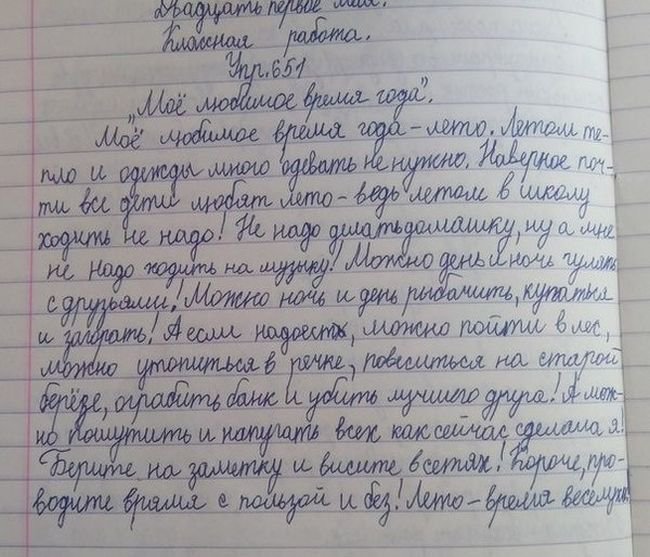 Двадцать первое мая.
Классная работа.
Упр.651
„Моё любимое время года".
Моё любимое время года - лето. Летом те-
пло и одежды много одевать не нужно. Наверное поч-
ти все дети любят лето - ведь летом в школу
ходить не надо! Не надо делать домашку, ну а мне
не надо ходить на музыку! Можно день и ночь гулять
с друзьями! Можно ночь и день рыбачить, купаться
и загорать! А если надоест, можно пойти в лес,
можно утопиться в речке, повеситься на старой
берёзе, ограбить банк и убить лучшего друга! А мож-
но пошутить и напугать всех как сейчас сделала я!
Берите на заметку и висите в сетях! Короче, про-
водите время с пользой и без! Лето - время веселухи!